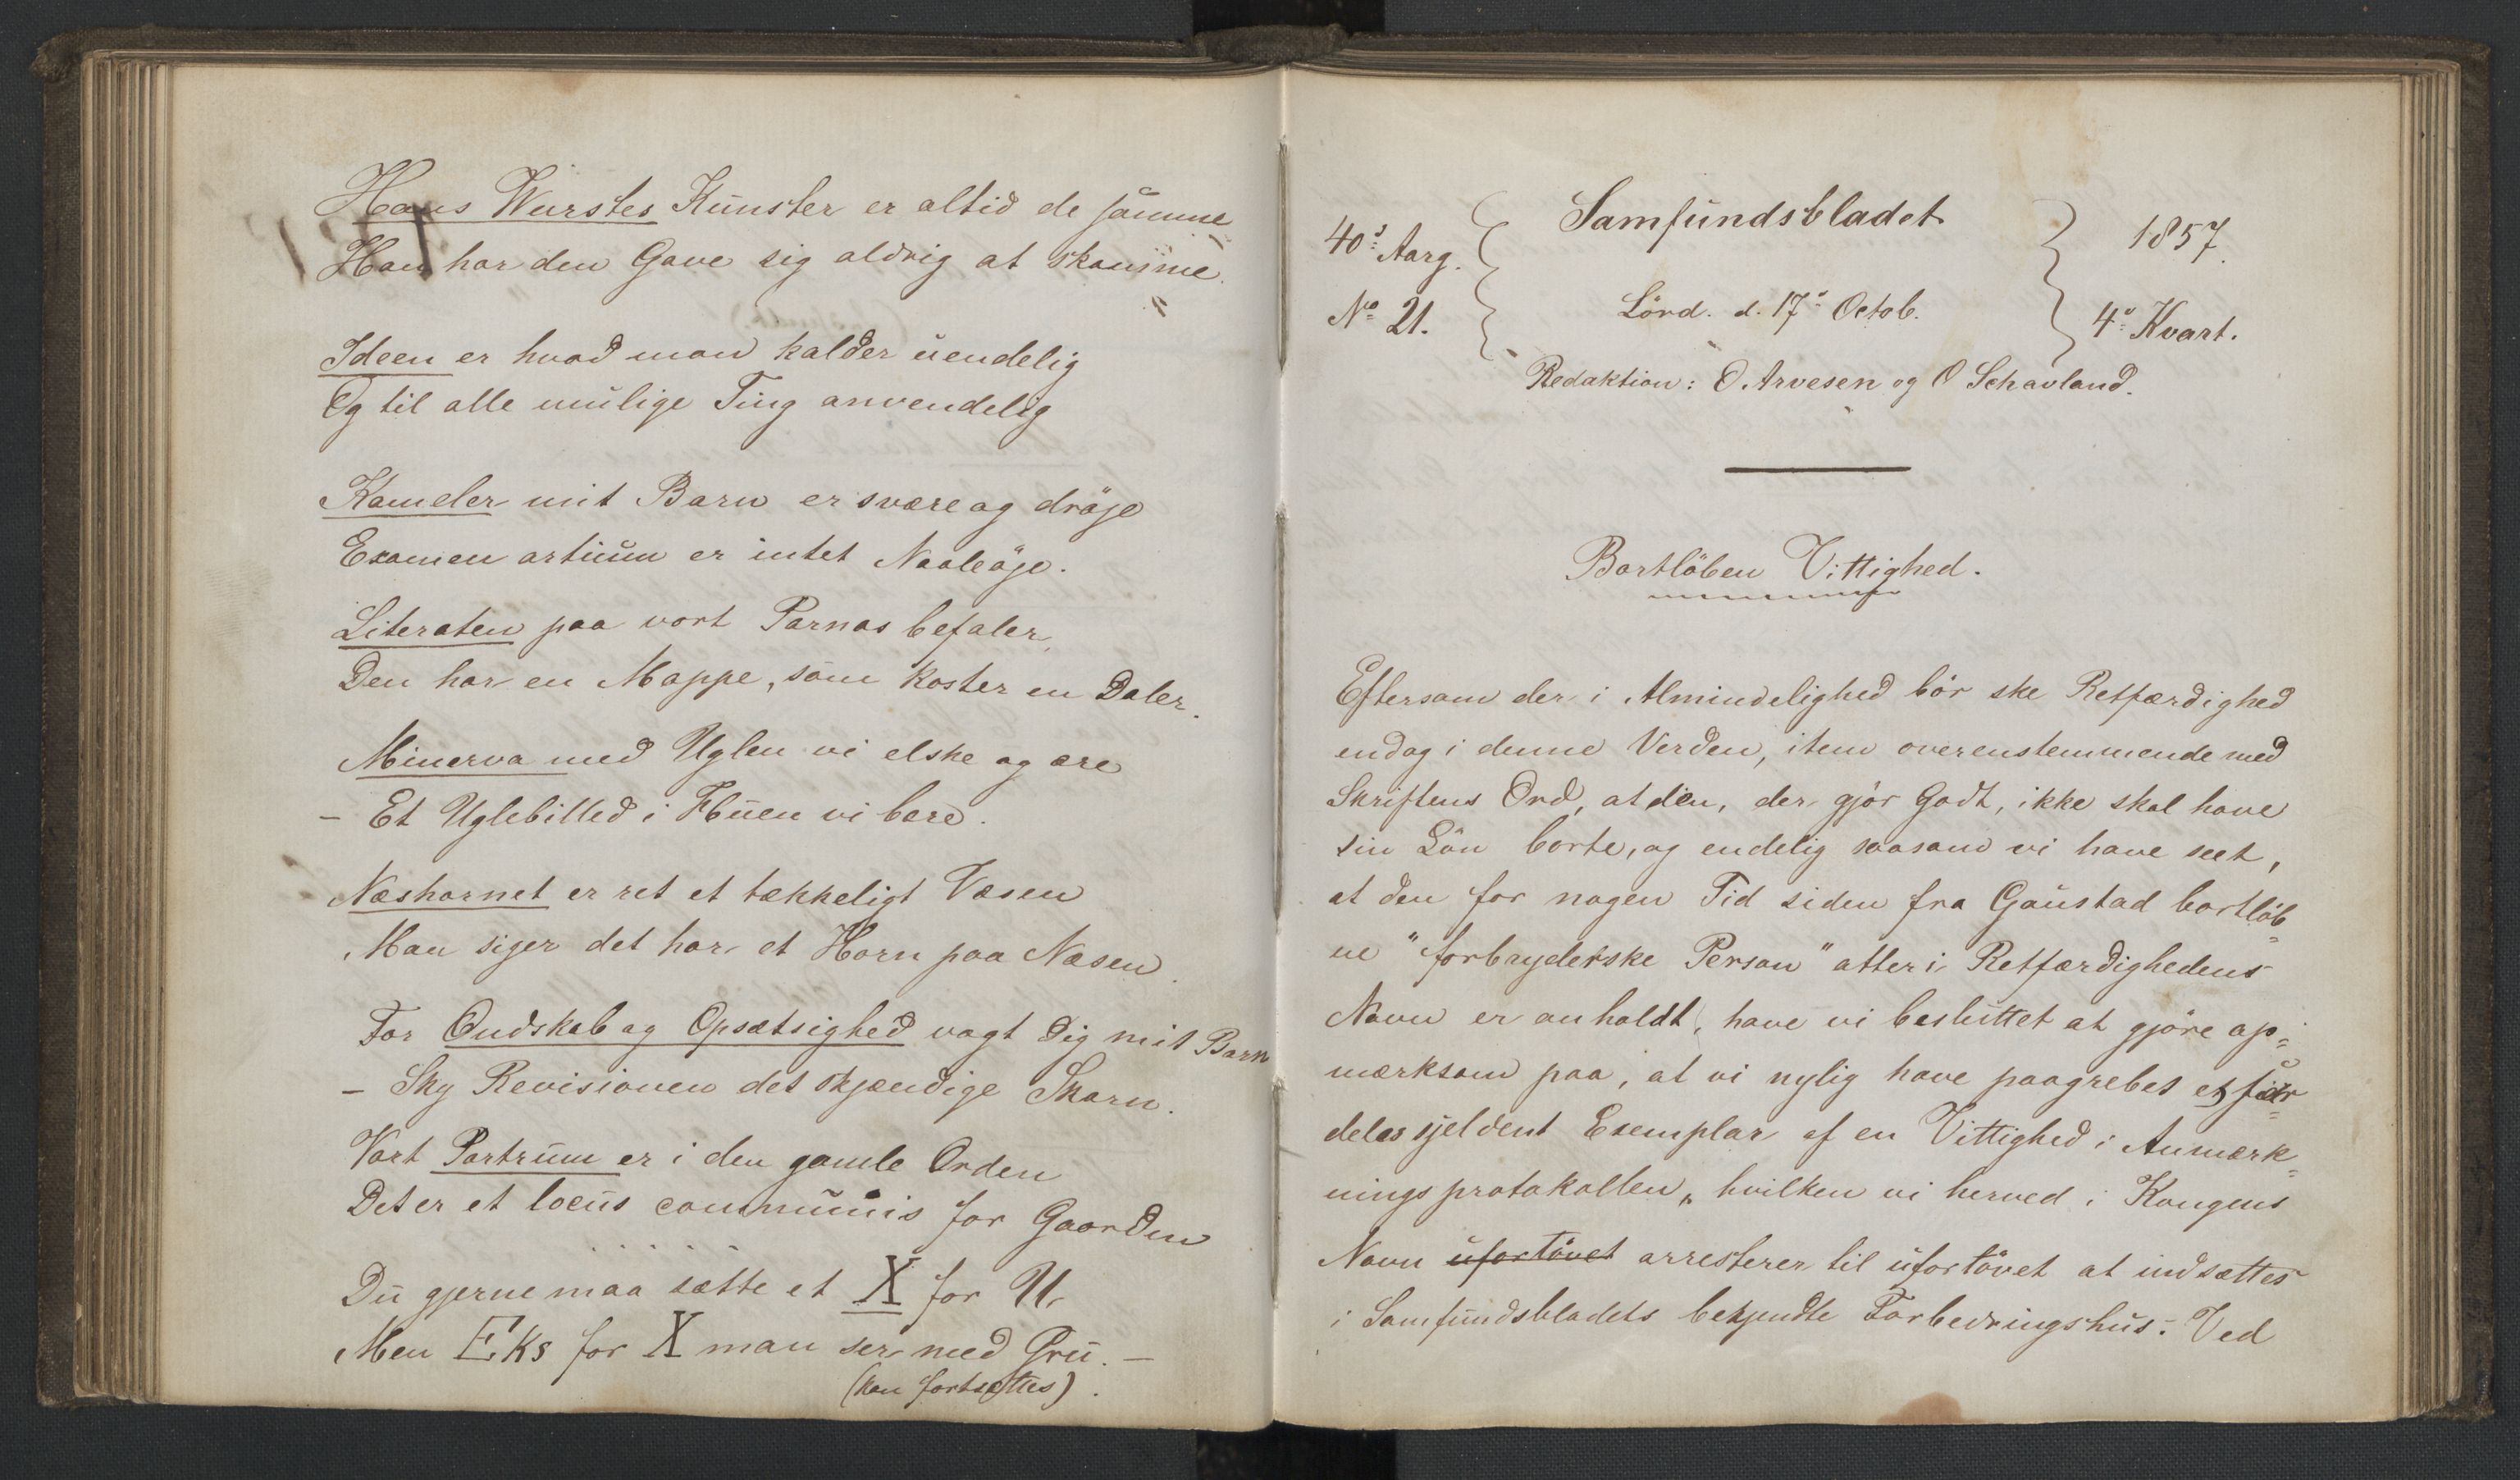 Hans Wurstes Kunster er altid de samme
Han har den Gave sig aldrig at skamme.
Ideen er hvad man kalder uendelig
Og til alle mulige Ting anvendelig
Kameler mit Barn er svære og dröje
Examen artium er intet Naaleöje.
Literaten paa vort Parnas befaler,
Den har en Mappe, som koster en Daler.
Minerva med Uglen vi elske og ære
- Et Uglebilled i Huen vi bære.
Næshornet er ret et tækkeligt Væsen
Man siger det har et Horn paa Næsen.
For Ondskab og Opsætsighed vogt Dig mit Barn
- Sky Revisionen det skjændige Skarn.
Vort Portrum er i den gamle Orden
Det er et locus communis for Gaarden
. . . . . .
Du gjerne maa sætte et X for U,
Men Eks for X man ser med Gru. —
(kan fortsættes).
Samfundsbladet
40de Aarg.
1857.
No 21.
Lörd. d. 17de Octob.
4de Kvart.
Redaktion: O Arvesen og O Schavland.
Bortlöben Vittighed.
Eftersom der i Almindelighed bör ske Retfærdighed
endog i denne Verden, item overenstemmende med
Skriftens Ord, at den, der gjör Godt, ikke skal have
sin Lön borte, og endelig saasom vi have seet,
at den for nogen Tid siden fra Gaustad bortlöb=
ne "forbryderske Person" atter i Retfærdighedens
Navn er anholdt, have vi besluttet at gjöre op=
mærksom paa, at vi nylig have paagrebet et sær=
deles sjeldent Exemplar af en Vittighed i Anmærk=
ningsprotokollen, hvilken vi herved i Kongens
Navn ufortövet arresterer til ufortövet at indsættes
i Samfundsbladets bekjendte Forbedringshus. Ved